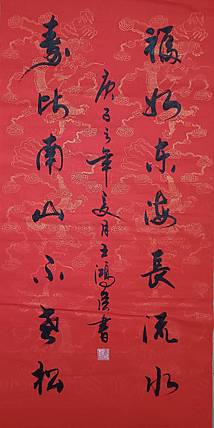 福如东海長流水
庚子之年夏月王鴻書
壽比南山不老松